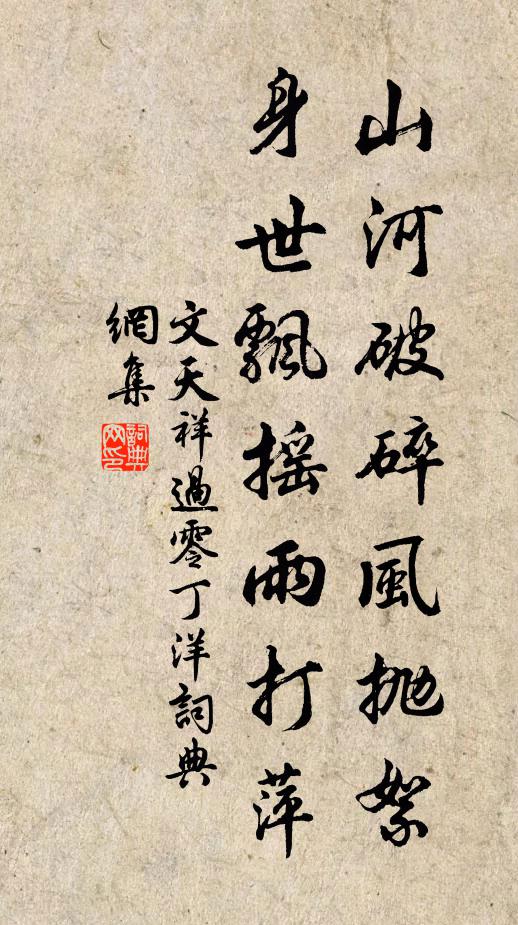 山河破碎風抛絮
身世飄摇雨打萍
文天祥過零丁洋詞典
網集
詞典网印